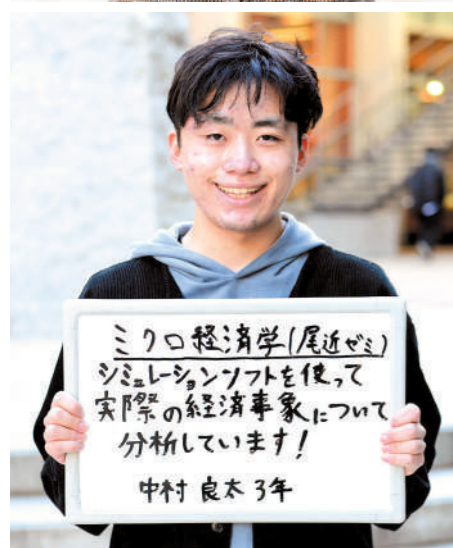 ミクロ経済学(尾近ゼミ)
シミュレーションソフトを使って
実際の経済事象について
分析しています!
中村 良太 3年